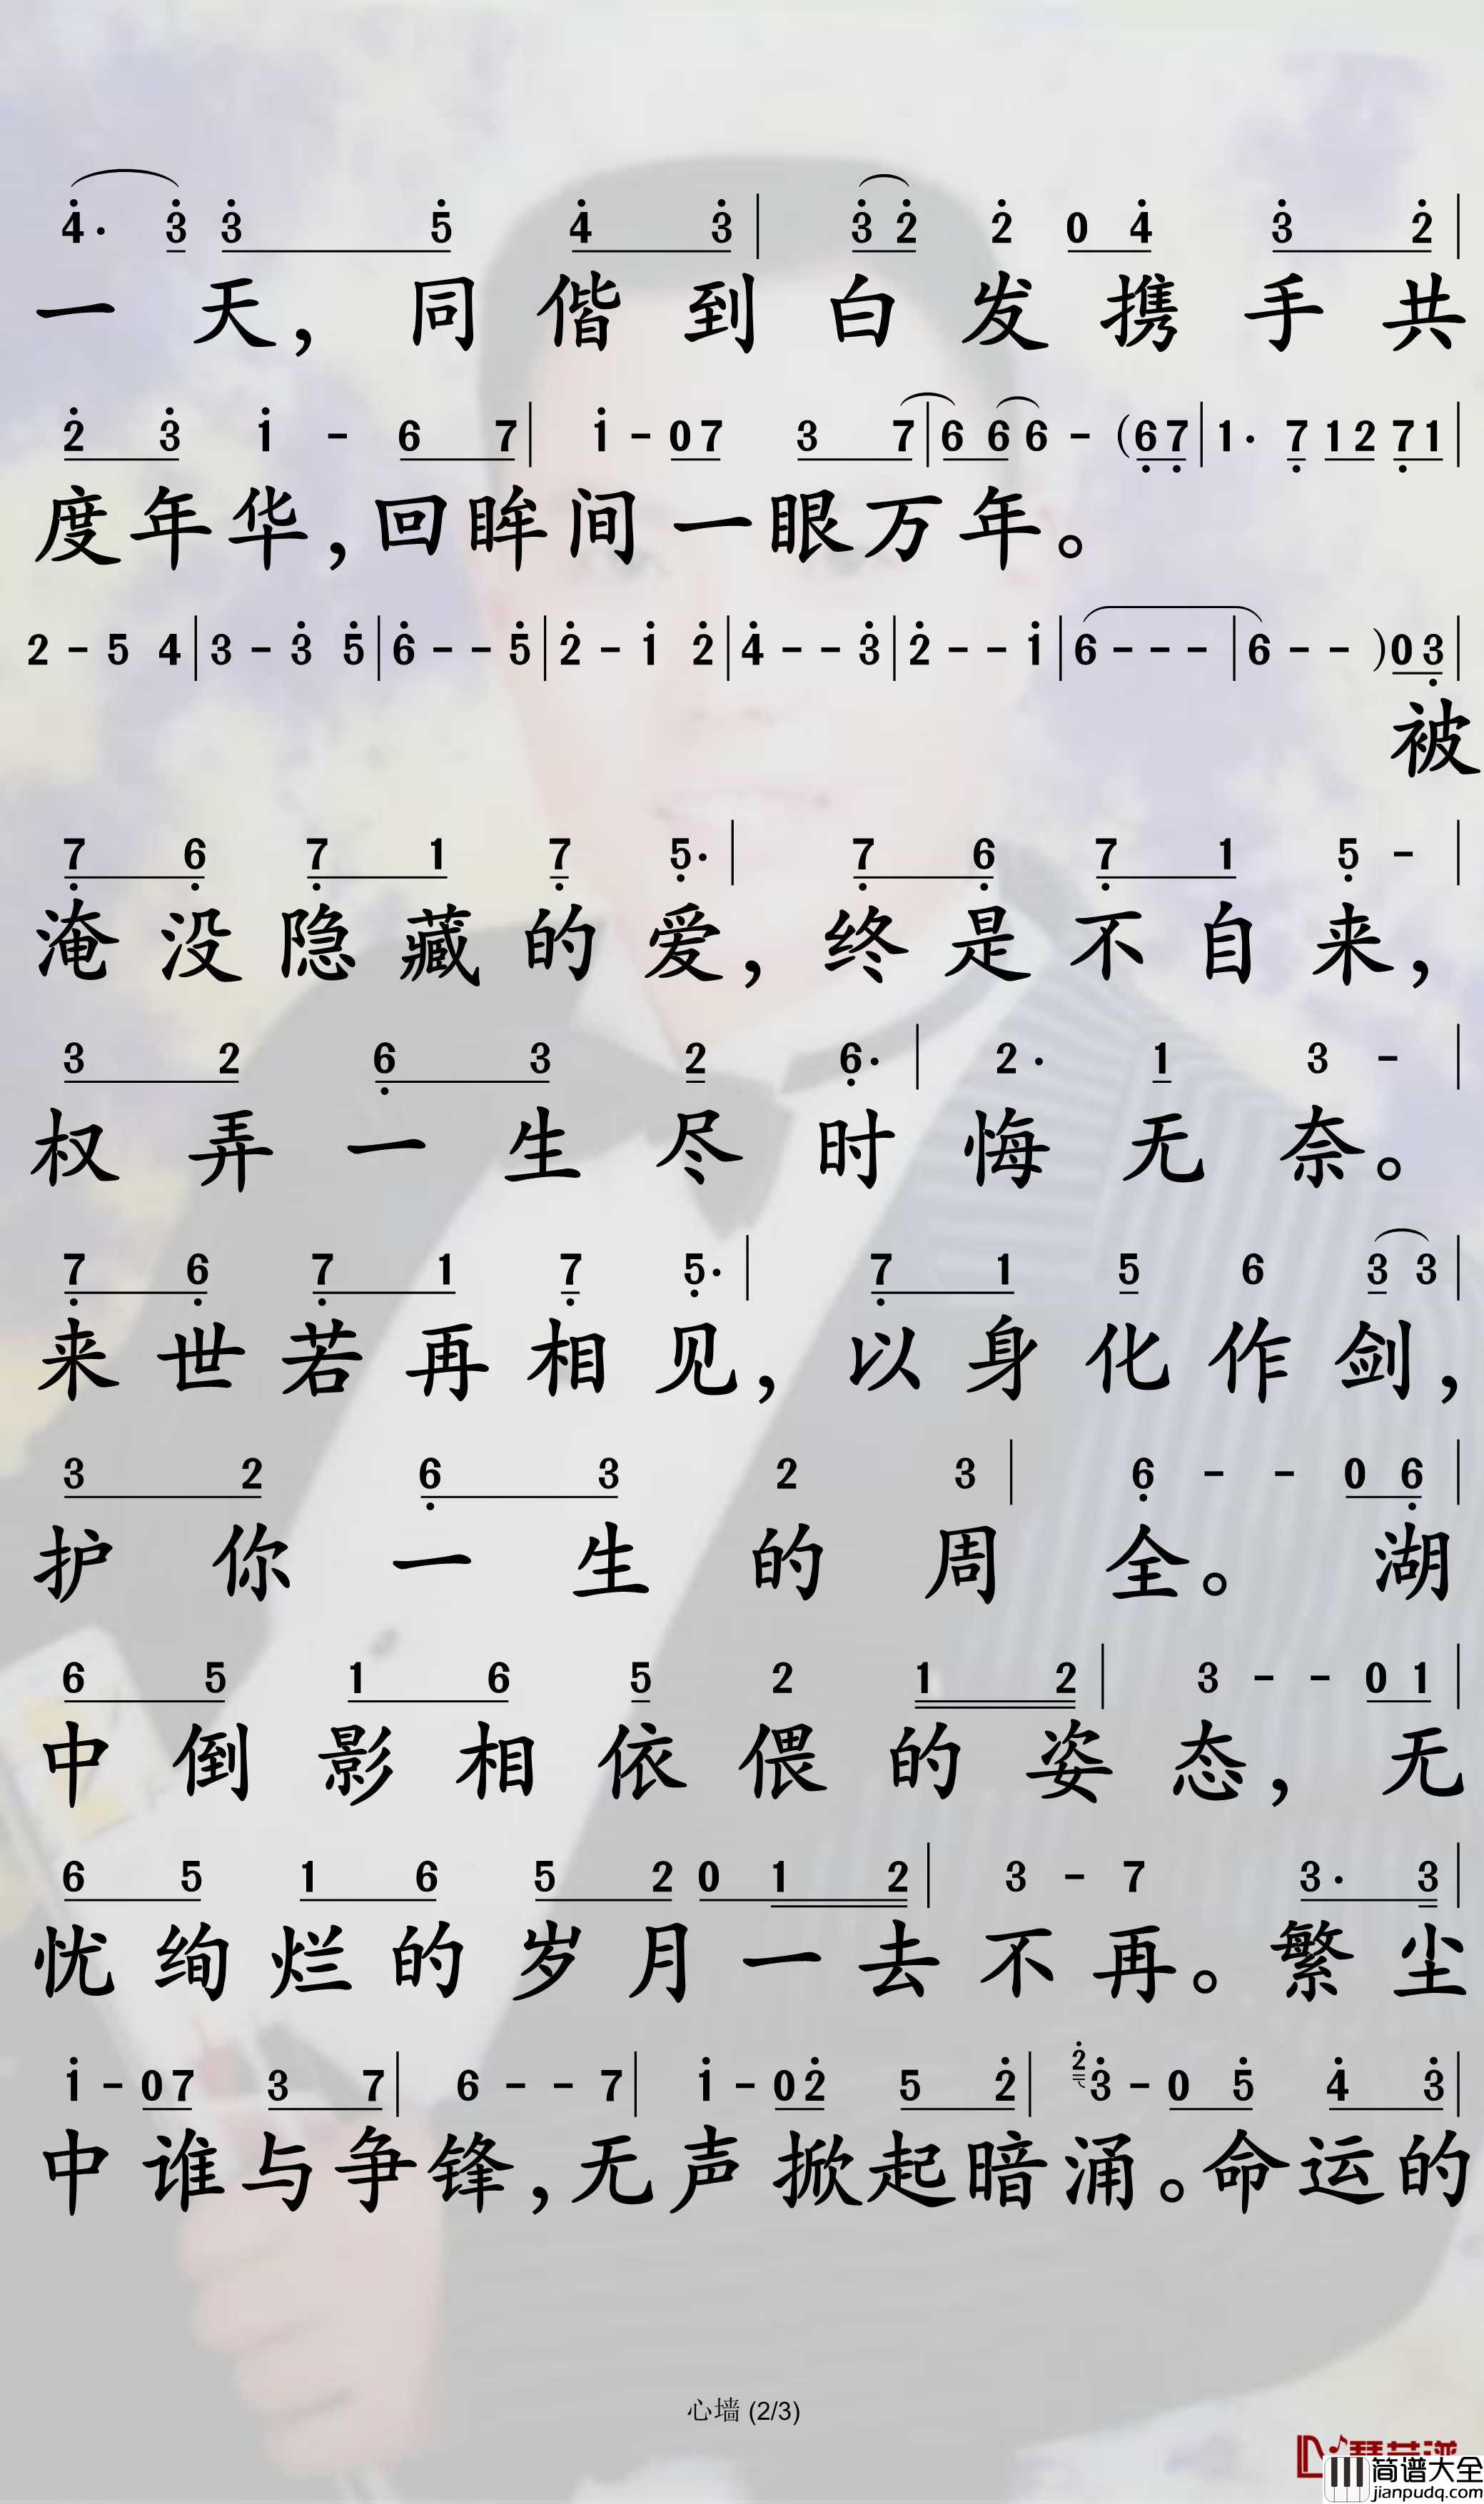 4̇· 3̇ 3̇ 5̇ 4̇ 3̇ | 3̇ 2̇ 2̇ 0 4̇ 3̇ 2̇ |
一天，同偕到白发携手共
2̇ 3̇ 1̇ - 6 7 | 1̇ - 0 7 3 7 | 6 6 6 - (6̣ 7̣ | 1· 7̣ 1 2 7̣ 1 |
度年华，回眸间一眼万年。
2 - 5 4 | 3 - 3̇ 5̇ | 6̇ - - 5̇ | 2̇ - 1̇ 2̇ | 4̇ - - 3̇ | 2̇ - - 1̇ | 6 - - - | 6 - - ) 0 3̣ |
被
7̣ 6̣ 7̣ 1 7̣ 5̣· | 7̣ 6̣ 7̣ 1 5̣ - |
淹没隐藏的爱，终是不自来，
3 2 6̣ 3 2 6̣· | 2· 1 3 - |
权弄一生尽时悔无奈。
7̣ 6̣ 7̣ 1 7̣ 5̣· | 7̣ 1 5 6 3 3 |
来世若再相见，以身化作剑，
3 2 6̣ 3 2 3 | 6̣ - - 0 6̣ |
护你一生的周全。湖
6 5 1 6 5 2 1 2 | 3 - - 0 1 |
中倒影相依偎的姿态，无
6 5 1 6 5 2 0 1 2 | 3 - 7 3· 3 |
忧绚烂的岁月一去不再。繁尘
1̇ - 0 7 3 7 | 6 - - 7 | 1̇ - 0 2̇ 5 2̇ | 2̇ 3̇ - 0 5̇ 4̇ 3̇ |
中谁与争锋，无声掀起暗涌。命运的
心墙 (2/3)
简谱大全
jianpudq.com